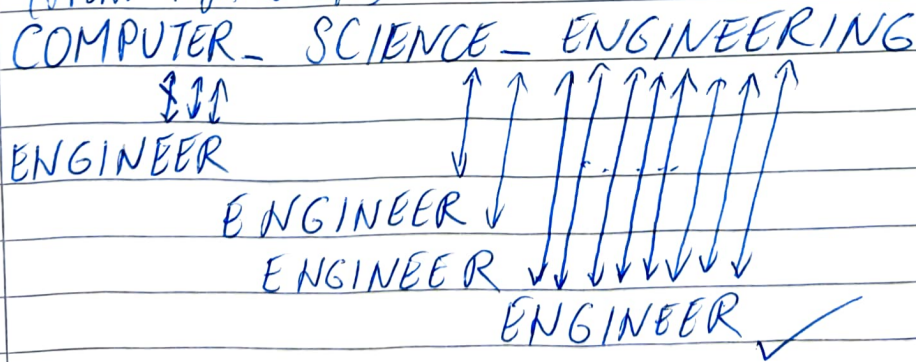 COMPUTER_ SCIENCE_ ENGINEERING
ENGINEER
ENGINEER
ENGINEER
ENGINEER